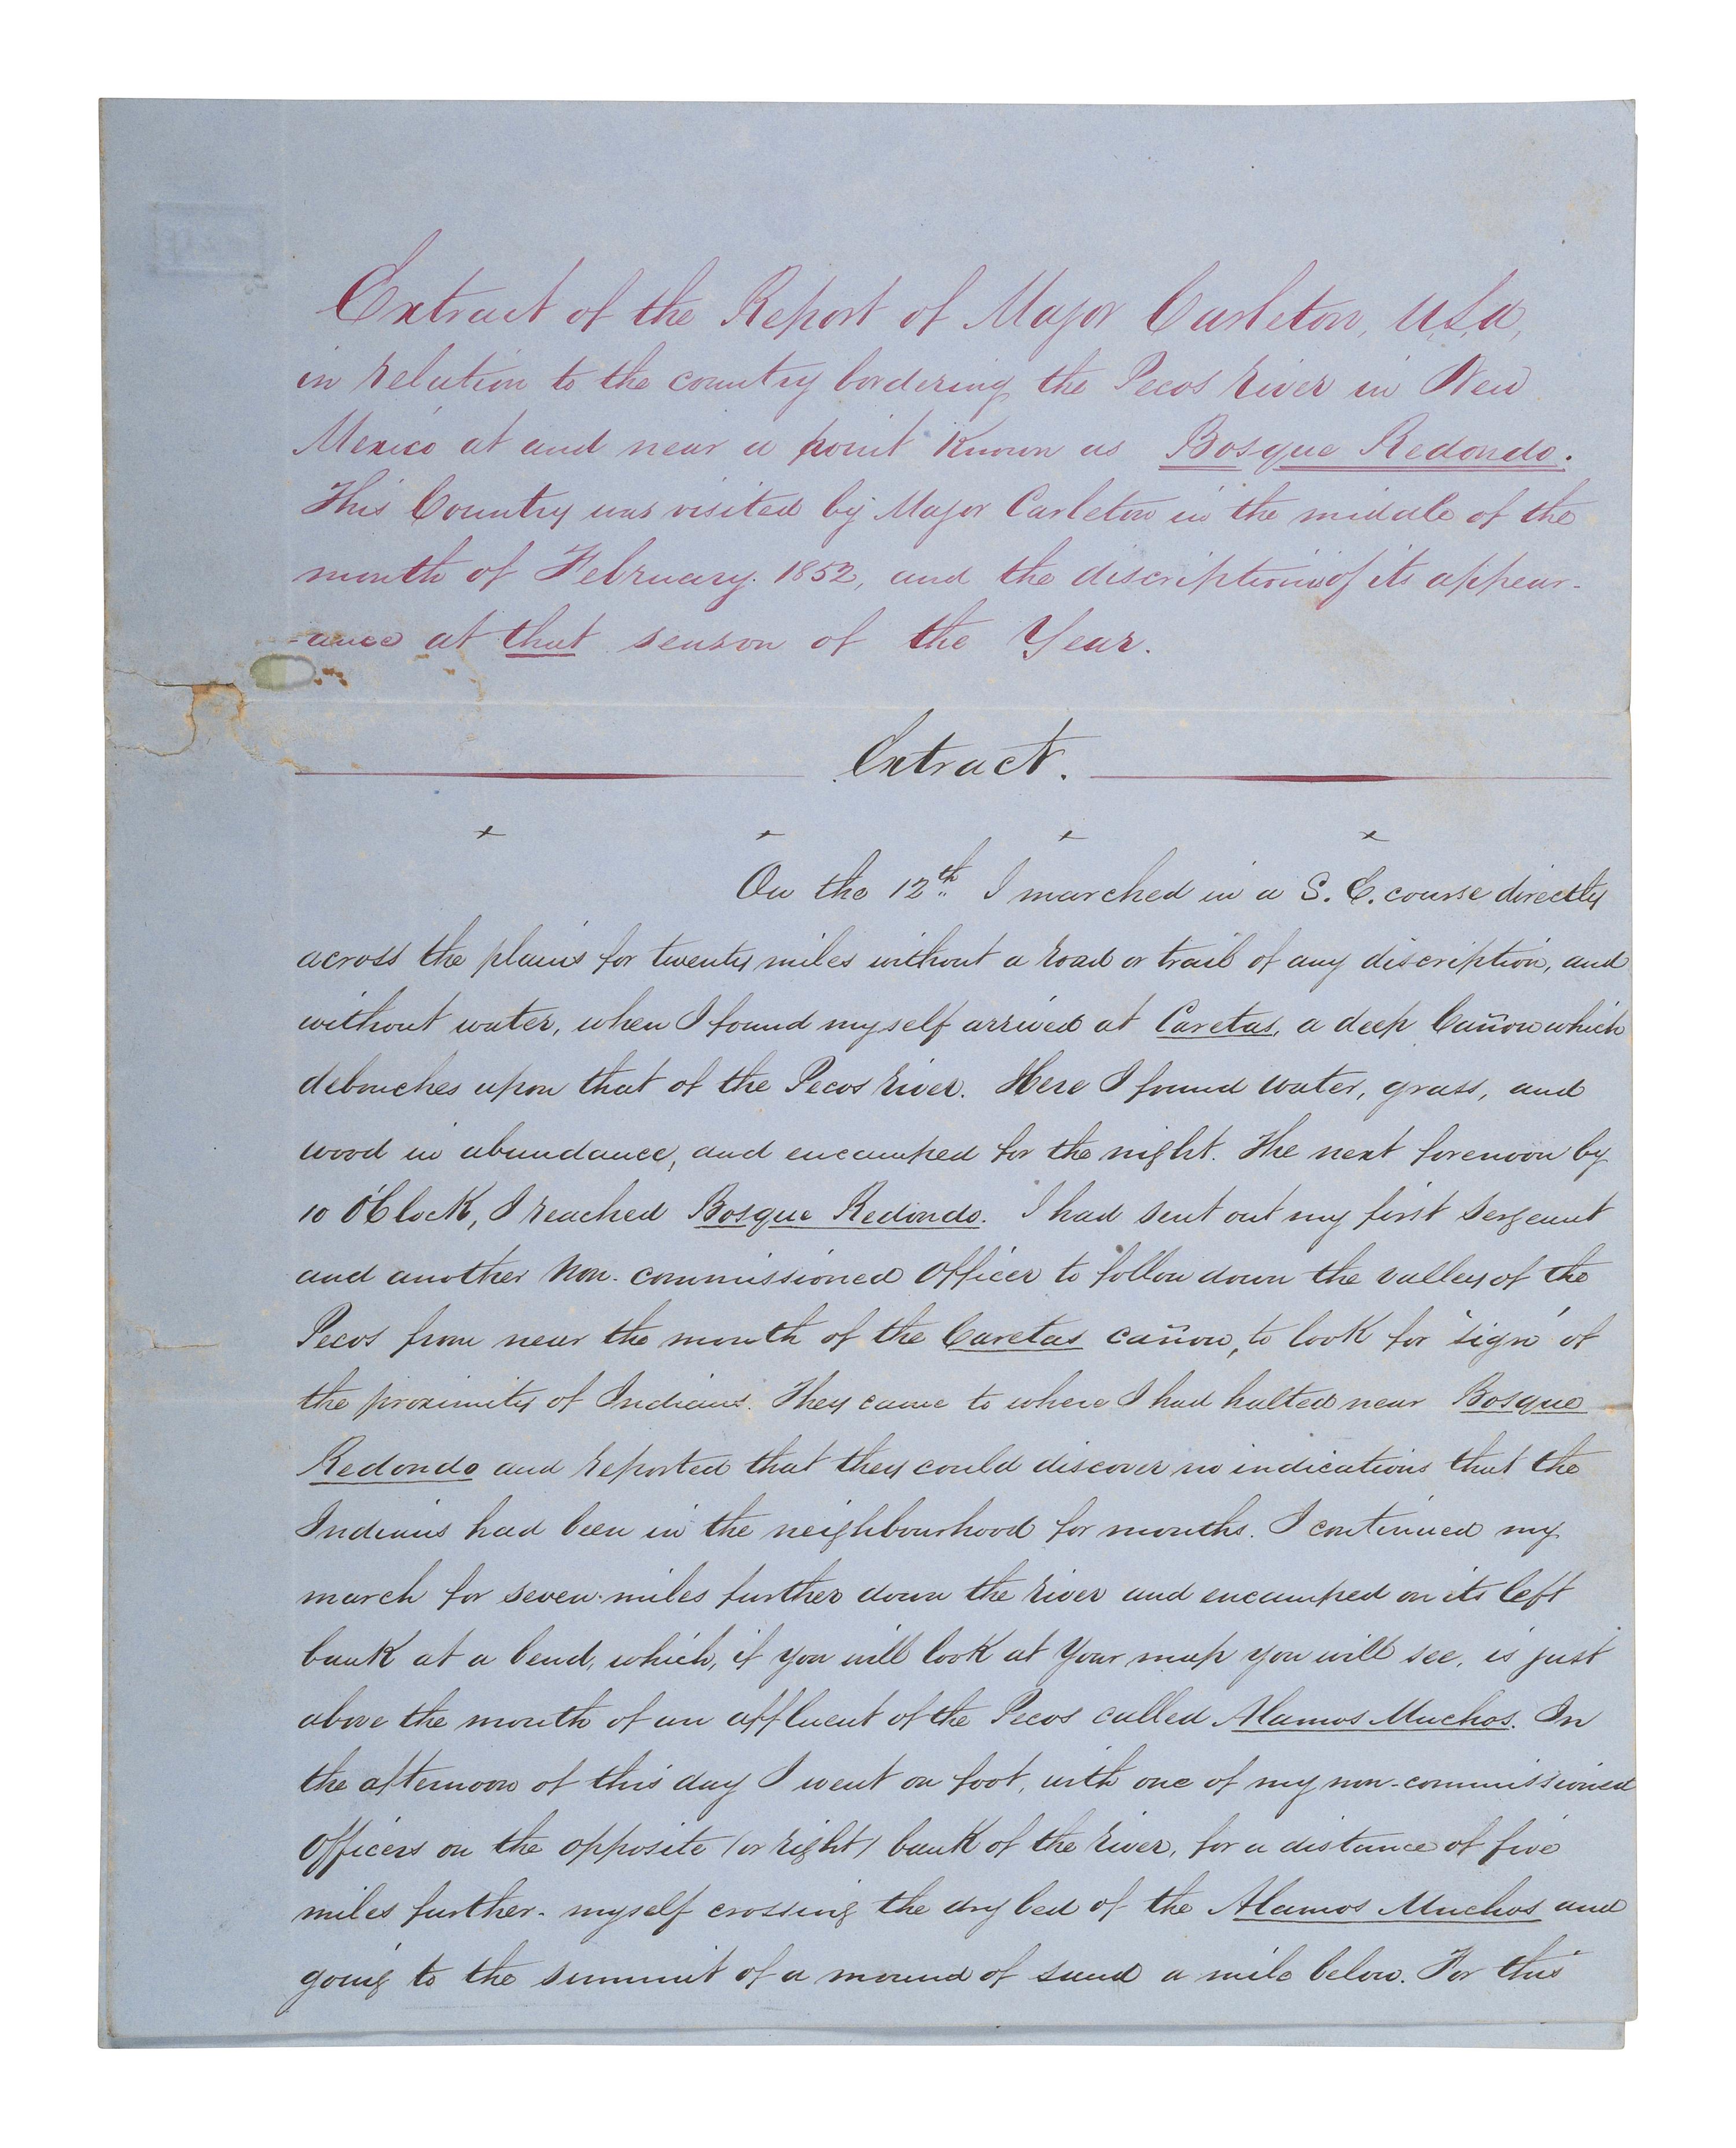 Extract of the Report of Major Carleton, U.S.A,
in relation to the country bordering the Pecos river in New
Mexico at and near a point known as Bosque Redondo.
This Country was visited by Major Carleton in the middle of the
month of February. 1852, and the discription is of its appear-
-ance at that season of the Year.
Extract.
x x x x
On the 12th I marched in a S. E. course directly
across the plains for twenty miles without a road or trail of any discription, and
without water, when I found myself arrived at Caretas, a deep Cañon which
debouches upon that of the Pecos river. Here I found water, grass, and
wood in abundance, and encamped for the night. The next forenoon by
10 O'Clock, I reached Bosque Redondo. I had sent out my first Sergeant
and another Non-commissioned Officer to follow down the valley of the
Pecos from near the mouth of the Caretas cañon, to look for "sign" of
the proximity of Indians. They came to where I had halted near Bosque
Redondo and reported that they could discover no indications that the
Indians had been in the neighbourhood for months. I continued my
march for seven miles further down the river and encamped on its left
bank at a bend, which, if you will look at Your map you will see, is just
above the mouth of an affluent of the Pecos called Alamos Muchos. In
the afternoon of this day I went on foot, with one of my non-commissioned
Officers on the opposite (or right) bank of the river, for a distance of five
miles further- myself crossing the dry bed of the Alamos Muchos and
going to the summit of a mound of sand a mile below. For this